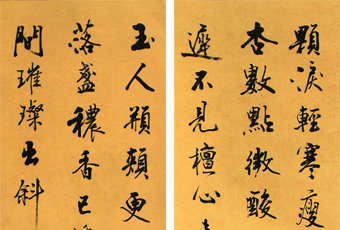 顆淚輕寒瘦
杏數點微酸
不見檀心
玉人頩頰更
落盞穠香已
璀璨出斜